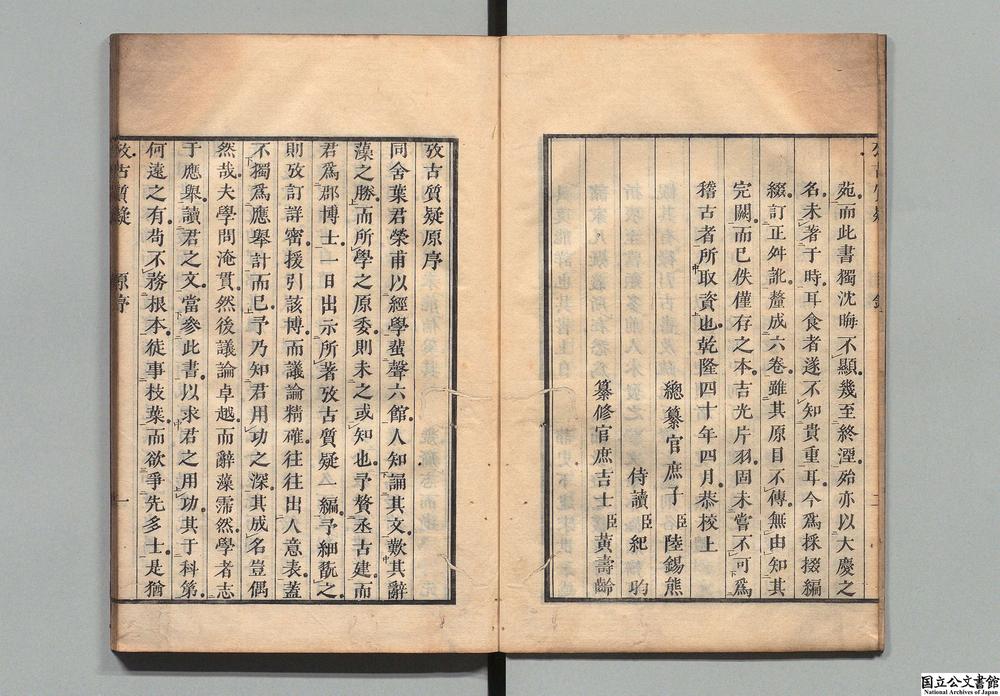 苑而此書獨沈晦不顯幾至終湮殆亦以大慶之
名未著于時耳食者遂不知貴重耳今爲採掇編
綴訂正舛訛釐成六卷雖其原目不傳無由知其
完闕而已佚僅存之本吉光片羽固未嘗不可爲
稽古者所取資也乾隆四十年四月恭校上
總纂官庶子臣陸錫熊
侍讀臣紀昀
纂修官庶吉士臣黃壽齡
攷古質疑原序
同舍葉君榮甫以經學蜚聲六館人知誦其文歎其辭
藻之勝而所學之原委則未之或知也予贅丞古建而
君爲郡博士一日出示所著攷古質疑一編予細翫之
則攷訂詳密援引該博而議論精確往往出人意表蓋
不獨爲應舉計而已予乃知君用功之深其成名豈偶
然哉夫學問淹貫然後議論卓越而辭藻霈然學者志
于應舉讀君之文當參此書以求君之用功其于科第
何遠之有茍不務根本徒事枝葉而欲爭先多士是猶
攷古質疑 原序 一
国立公文書館
National Archives of Japan